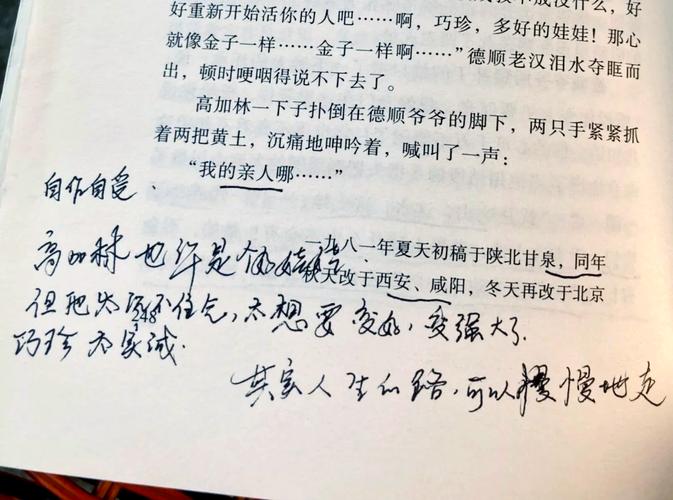 好重新开始活你的人吧……啊，巧珍，多好的娃娃！那心
就像金子一样……金子一样啊……”德顺老汉泪水夺眶而
出，顿时哽咽得说不下去了。
高加林一下子扑倒在德顺爷爷的脚下，两只手紧紧抓
着两把黄土，沉痛地呻吟着，喊叫了一声：
“我的亲人哪……”
自作自受
一九八一年夏天初稿于陕北甘泉，同年
秋天改于西安、咸阳，冬天再改于北京
高加林也许是个好
但把 不住了，太想要变好，变强大了.
巧珍太实诚.
其实人生的路，可以慢慢地走